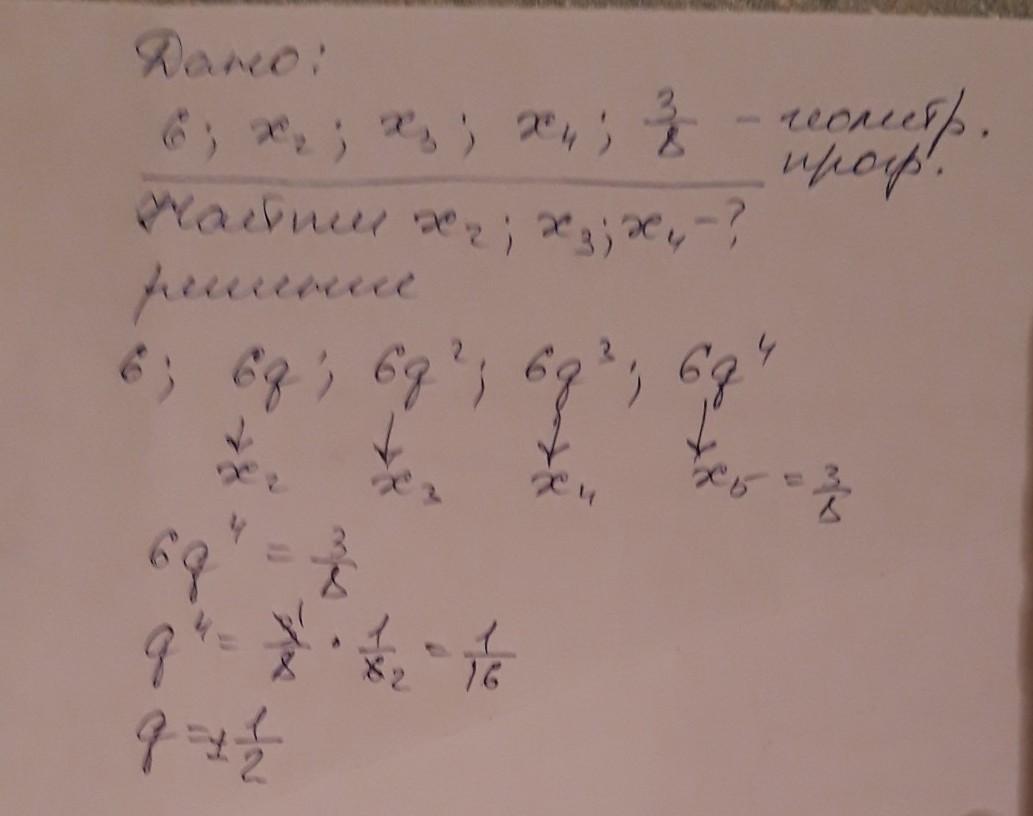 Дано:
6; x₂; x₃; x₄; 3/8 - геометр.
прогр.
Найти x₂; x₃; x₄ - ?
решение
6; 6q; 6q²; 6q³; 6q⁴
↓ ↓ ↓ ↓
x₂ x₃ x₄ x₅ = 3/8
6q⁴ = 3/8
q⁴ = 3̸¹/8 · 1/6̸₂ = 1/16
q = ±1/2